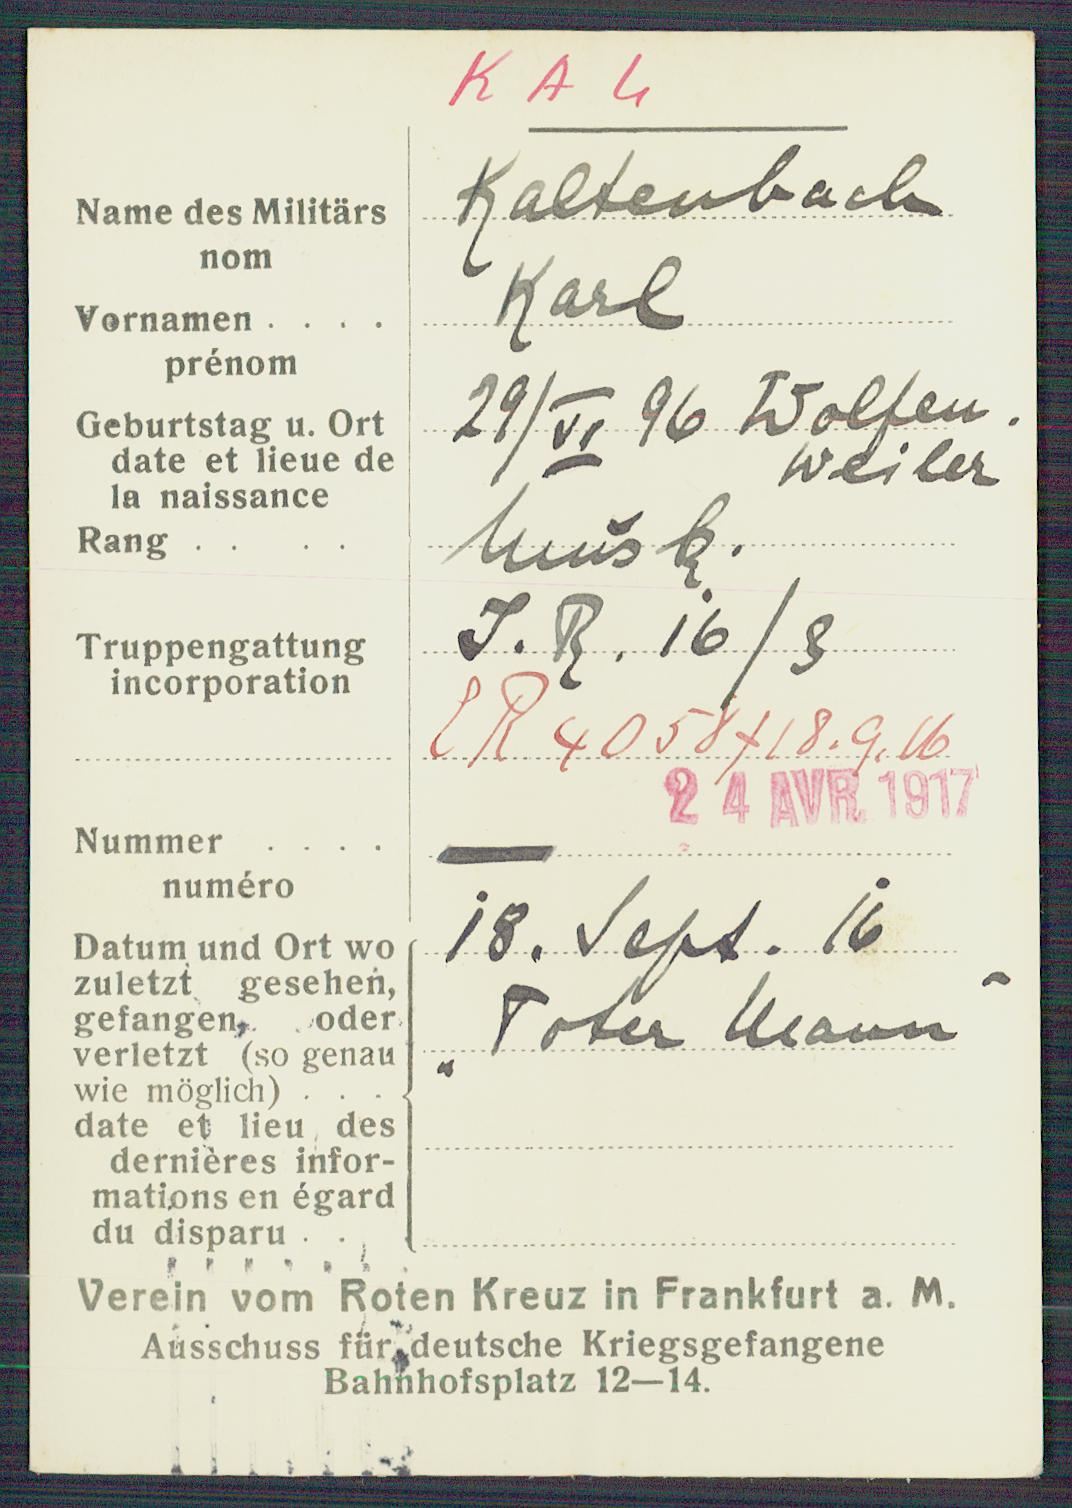 KAL
Name des Militärs Kaltenbach
nom
Vornamen . . . . Karl
prénom
Geburtstag u. Ort 29/VI 96 Wolfen.
date et lieue de weiler
la naissance
Rang . . . . Musk.
Truppengattung J. R. 16/3
incorporation
LR 4058 + 18.9.16
24 AVR. 1917
Nummer . . . . —
numéro
Datum und Ort wo 18. Sept. 16
zuletzt gesehen,
gefangen, oder „Toter Mann"
verletzt (so genau
wie möglich) . . .
date et lieu des
dernières infor-
mations en égard
du disparu . . .
Verein vom Roten Kreuz in Frankfurt a. M.
Ausschuss für deutsche Kriegsgefangene
Bahnhofsplatz 12—14.